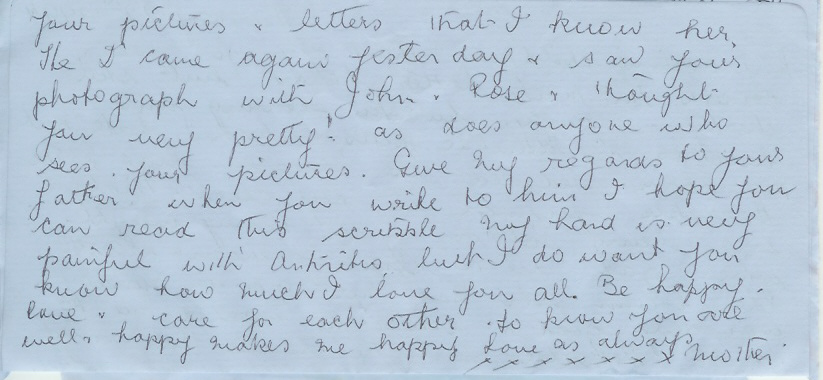 your pictures & letters that I know her,
The I came again yesterday & saw your
photograph with John & Rose & thought
you very pretty! as does anyone who
sees your pictures. Give my regards to your
father when you write to him I hope you
can read this scribble my hand is very
painful with Artritis but I do want you
know how much I love you all. Be happy.
love & care for each other to know you are
well & happy makes me happy Love as always
x x x x x x x Mother.